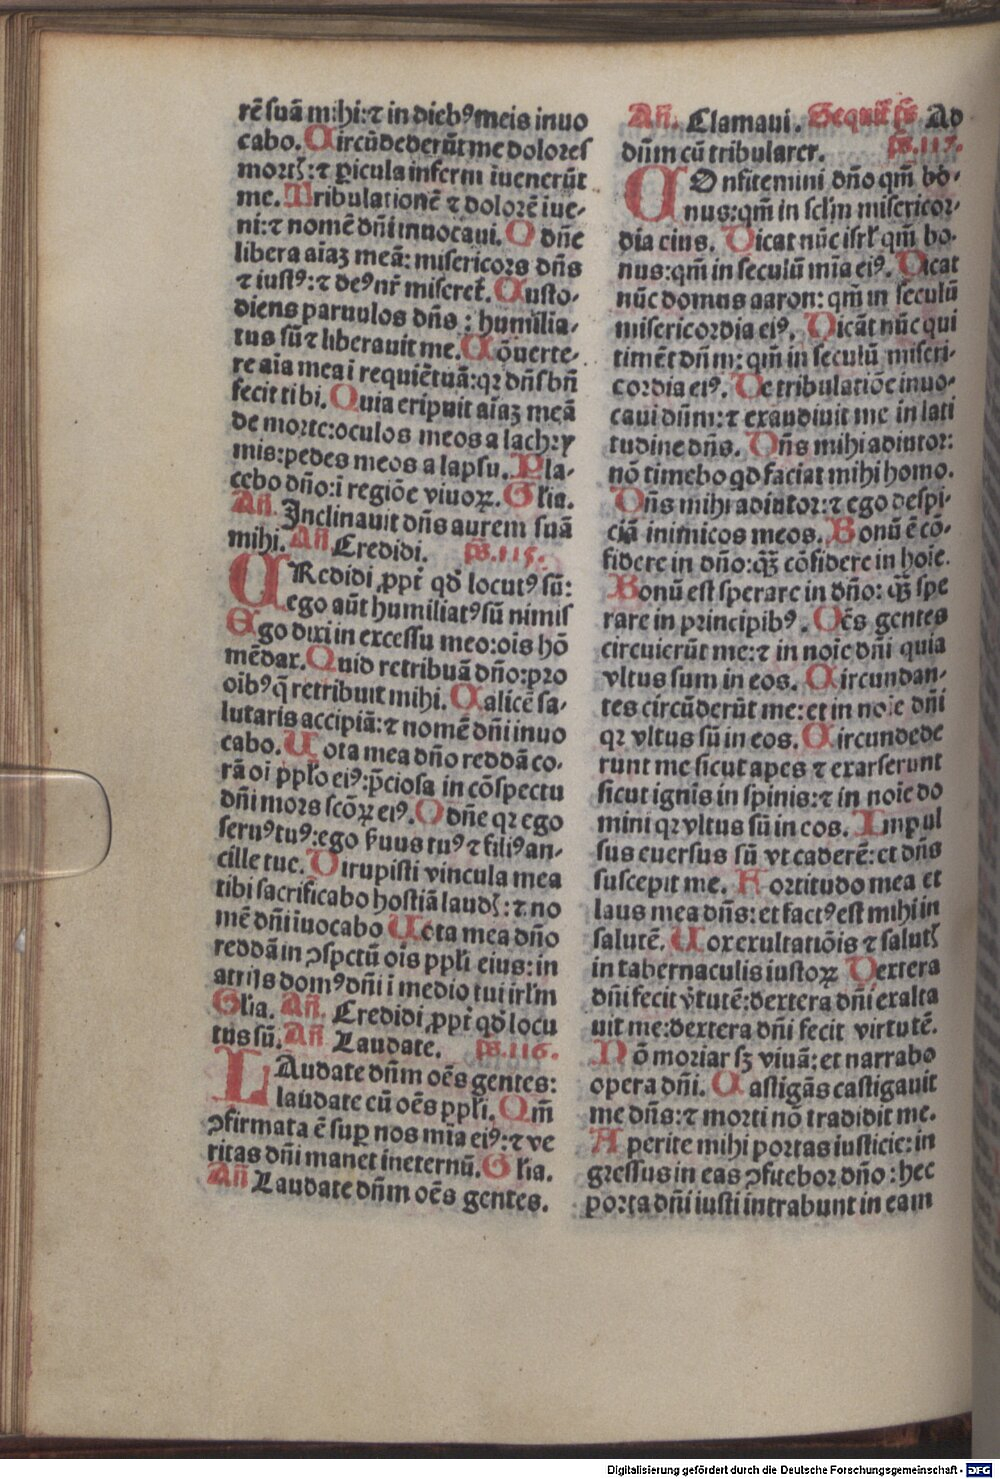 rē suā mihi: ⁊ in diebꝰ meis inuo
cabo. Circūdederūt me dolores
mortꝭ: ⁊ ꝑicula inferni īuenerūt
me. Tribulationē ⁊ dolorē iue-
ni: ⁊ nomē dn̄i inuocaui. O dn̄e
libera aīaꝫ meā: misericors dn̄s
⁊ iustꝰ: ⁊ deꝰ nr̄ miseret̄. Custo-
diens paruulos dn̄s: humilia-
tus sū ⁊ liberauit me. Cōuerte-
re aīa mea ī requiē tuā: qꝛ dn̄s bn̄
fecit tibi. Quia eripuit aīaꝫ meā
de morte: oculos meos a lachry
mis: pedes meos a lapsu. Pla-
cebo dn̄o: ī regiōe viuoꝝ. Gl̄ia.
An̄. Inclinauit dn̄s aurem suā
mihi. An̄ Credidi. ps̄. 115.
CRedidi ꝓpt̄ qd̄ locutꝰ sū:
ego aūt humiliatꝰ sū nimis
Ego dixi in excessu meo: oīs hō
mēdax. Quid retribuā dn̄o: pro
oībꝰ q̄ retribuit mihi. Calicē sa-
lutaris accipiā: ⁊ nomē dn̄i inuo
cabo. Uota mea dn̄o reddā co-
rā oī ppl̄o eiꝰ: p̄ciosa in cōspectu
dn̄i mors scōꝝ eiꝰ. O dn̄e qꝛ ego
seruꝰ tuꝰ: ego s̄uus tuꝰ ⁊ filiꝰ an-
cille tue. Dirupisti vincula mea
tibi sacrificabo hostiā laudꝭ: ⁊ no
mē dn̄i īuocabo Uota mea dn̄o
reddā in ꝯspctū oīs ppl̄i eius: in
atrijs domꝰ dn̄i ī medio tui irl̄m
Gl̄ia. An̄. Credidi ꝓpt̄ qd̄ locu
tus sū. An̄ Laudate. ps̄. 116.
LAudate dn̄m oēs gentes:
laudate eū oēs ppl̄i. Qm̄
ꝯfirmata ē suꝑ nos mīa eiꝰ: ⁊ ve
ritas dn̄i manet ineternū. Gl̄ia.
An̄ Laudate dn̄m oēs gentes.
An̄. Clamaui. Sequit̄ ps̄ Ad
dn̄m cū tribularer. ps̄. 117.
COnfitemini dn̄o qm̄ bo-
nus: qm̄ in scl̄m misericor-
dia eius. Dicat nūc isrl̄ qm̄ bo-
nus: qm̄ in seculū mīa eiꝰ. Dicat
nūc domus aaron: qm̄ in seculū
misericordia eiꝰ. Dicāt nūc qui
timēt dn̄m: qm̄ in seculū miseri-
cordia eiꝰ. De tribulatiōe inuo-
caui dn̄m: ⁊ exaudiuit me in lati
tudine dn̄s. Dn̄s mihi adiutor:
nō timebo qd faciat mihi homo.
Dn̄s mihi adiutor: ⁊ ego despi-
ciā inimicos meos. Bonū ē cō-
fidere in dn̄o: q̄ꝫ cōfidere in hoīe.
Bonū est sperare in dn̄o: q̄ꝫ spe
rare in principibꝰ. Oēs gentes
circuierūt me: ⁊ in noīe dn̄i quia
vltus sum in eos. Circundan-
tes circūderūt me: et in noīe dn̄i
qꝛ vltus sū in eos. Circundede
runt me sicut apes ⁊ exarserunt
sicut ignis in spinis: ⁊ in noīe do
mini qꝛ vltus sū in eos. Impul
sus euersus sū vt caderē: et dn̄s
suscepit me. Fortitudo mea et
laus mea dn̄s: et factꝰ est mihi in
salutē. Uox exultatiōis ⁊ salutꝭ
in tabernaculis iustoꝝ Dextera
dn̄i fecit v̄tutē: dextera dn̄i exalta
uit me: dextera dn̄i fecit virtutē.
Nō moriar sꝫ viuā: et narrabo
opera dn̄i. Castigās castigauit
me dn̄s: ⁊ morti nō tradidit me.
Aperite mihi portas iusticie: in
gressus in eas ꝯfitebor dn̄o: hec
porta dn̄i iusti intrabunt in eam
Digitalisierung gefördert durch die Deutsche Forschungsgemeinschaft - DFG